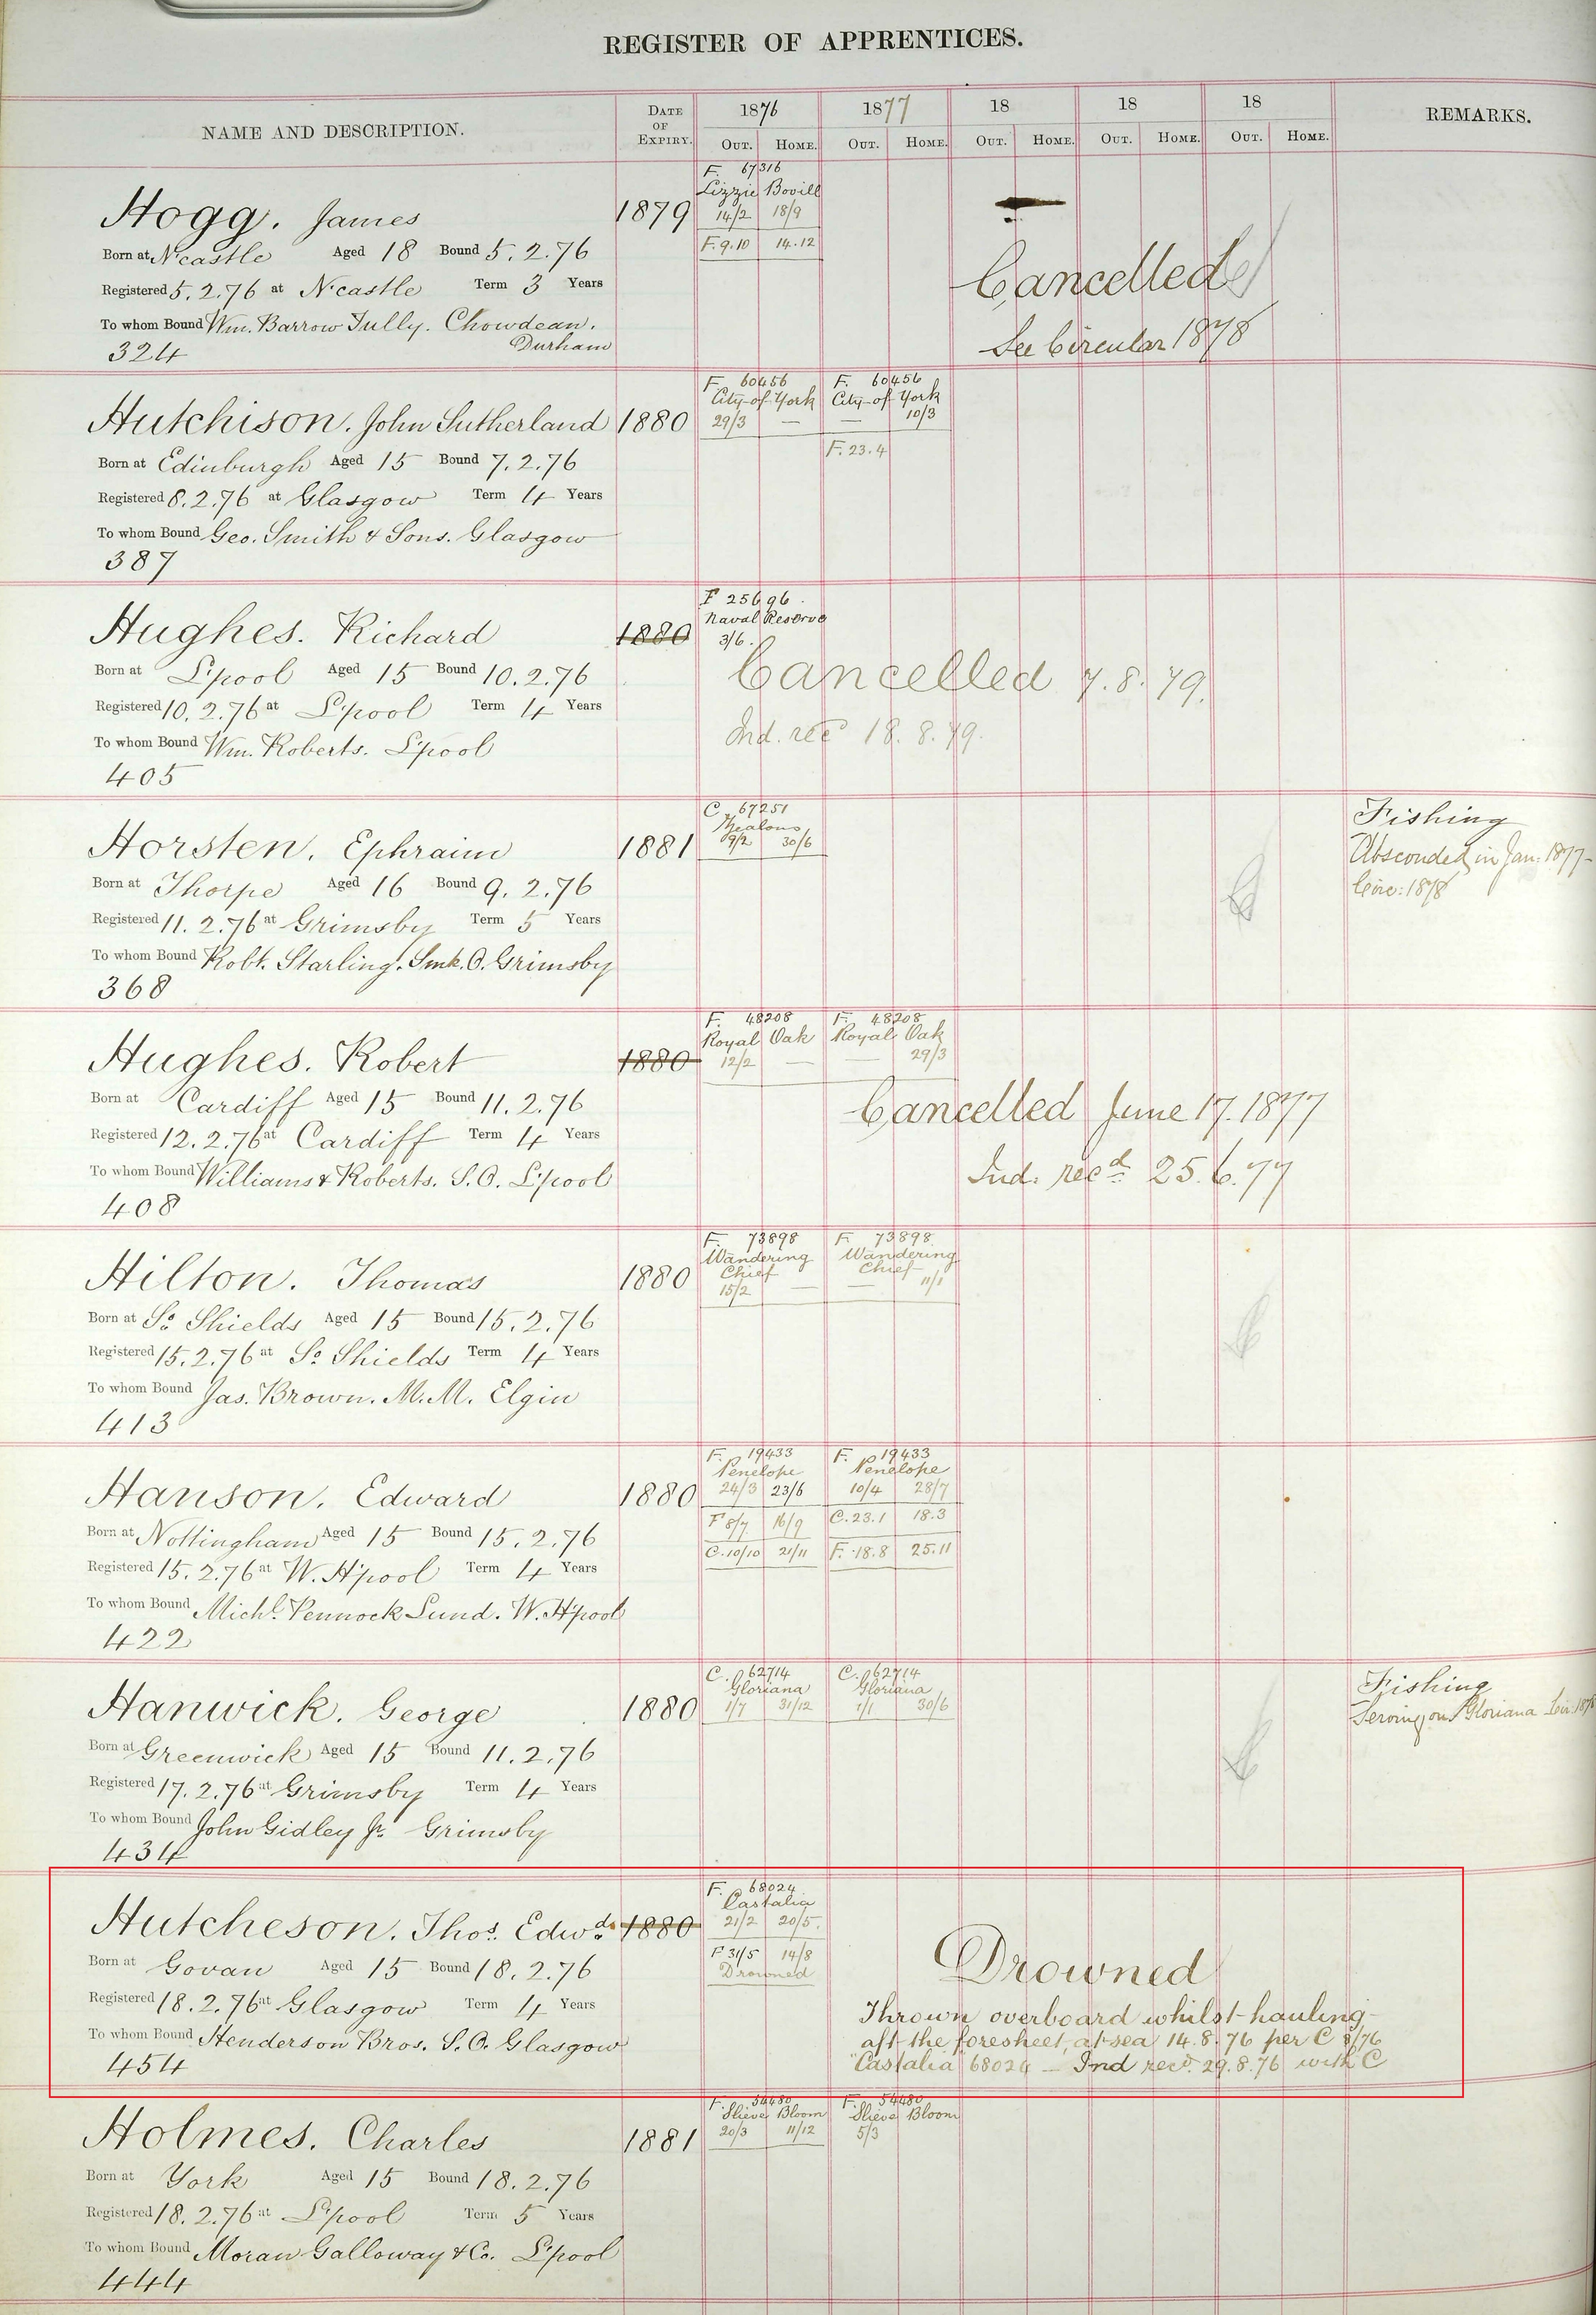 REGISTER OF APPRENTICES.
NAME AND DESCRIPTION.
DATE OF EXPIRY.
1876
1877
18
18
18
REMARKS.
OUT. HOME. OUT. HOME. OUT. HOME. OUT. HOME. OUT. HOME.
F. 67316
Lizzie Bovill
Hogg. James 1879 14/2 18/9
Born at N'castle Aged 18 Bound 5.2.76 F. 9.10 14.12
Cancelled
Registered 5.2.76 at N'castle Term 3 Years
To whom Bound Wm. Barrow Tully. Chowdean.
Durham
See Circular 1878
324
F. 60456 F. 60456
City of York City of York
Hutchison. John Sutherland 1880 29/3 — — 10/3
F. 23.4
Born at Edinburgh Aged 15 Bound 7.2.76
Registered 8.2.76 at Glasgow Term 4 Years
To whom Bound Geo. Smith & Sons. Glasgow
387
F 25696
Naval Reserve
Hughes. Richard 1880 3/6.
Born at L'pool Aged 15 Bound 10.2.76
Cancelled 7.8.79.
Registered 10.2.76 at L'pool Term 4 Years
Ind. rec 18.8.79.
To whom Bound Wm. Roberts. L'pool
405
C. 67251
Zealous
Fishing
Horsten. Ephraim 1881 9/2 30/6
Absconded in Jan: 1877-
Circ: 1878
Born at Thorpe Aged 16 Bound 9.2.76
Registered 11.2.76 at Grimsby Term 5 Years
To whom Bound Robt. Starling. Smk. O. Grimsby
368
F. 48208 F. 48208
Royal Oak Royal Oak
Hughes. Robert 1880 12/2 — — 29/3
Born at Cardiff Aged 15 Bound 11.2.76
Cancelled June 17. 1877
Registered 12.2.76 at Cardiff Term 4 Years
To whom Bound Williams & Roberts. S.O. L'pool
Ind. recd 25.6.77
408
F. 73898 F. 73898
Wandering Chief Wandering Chief
Hilton. Thomas 1880 15/2 — — 11/1
Born at So. Shields Aged 15 Bound 15.2.76
Registered 15.2.76 at So. Shields Term 4 Years
To whom Bound Jas. Brown. M.M. Elgin
413
F. 19433 F. 19433
Penelope Penelope
Hanson. Edward 1880 24/3 23/6 10/4 28/7
F 8/7 16/9 C. 23.1 18.3
Born at Nottingham Aged 15 Bound 15.2.76
C. 10/10 21/11 F. 18.8 25.11
Registered 15.2.76 at W. H'pool Term 4 Years
To whom Bound Michl. Pennock Lund. W. H'pool
422
C. 62714 C. 62714
Gloriana Gloriana
Fishing
Hanwick. George 1880 1/7 31/12 1/1 30/6
Serving on Gloriana Cir. 1878
Born at Greenwick Aged 15 Bound 11.2.76
Registered 17.2.76 at Grimsby Term 4 Years
To whom Bound John Gidley Jr. Grimsby
434
F. 68024
Castalia
Hutcheson. Thos. Edwds. 1880 21/2 20/5.
F 31/5 14/8
Drowned
Born at Govan Aged 15 Bound 18.2.76
Drowned
Registered 18.2.76 at Glasgow Term 4 Years
Thrown overboard whilst hauling
aft the foresheet, at sea 14.8.76 per C 8/76
To whom Bound Henderson Bros. S.O. Glasgow
"Castalia 68024 — Ind recd. 29.8.76 with C
454
F. 54480 F. 54480
Slieve Bloom Slieve Bloom
Holmes. Charles 1881 20/3 11/12 5/3
Born at York Aged 15 Bound 18.2.76
Registered 18.2.76 at L'pool Term 5 Years
To whom Bound Moran Galloway & Co. L'pool
444